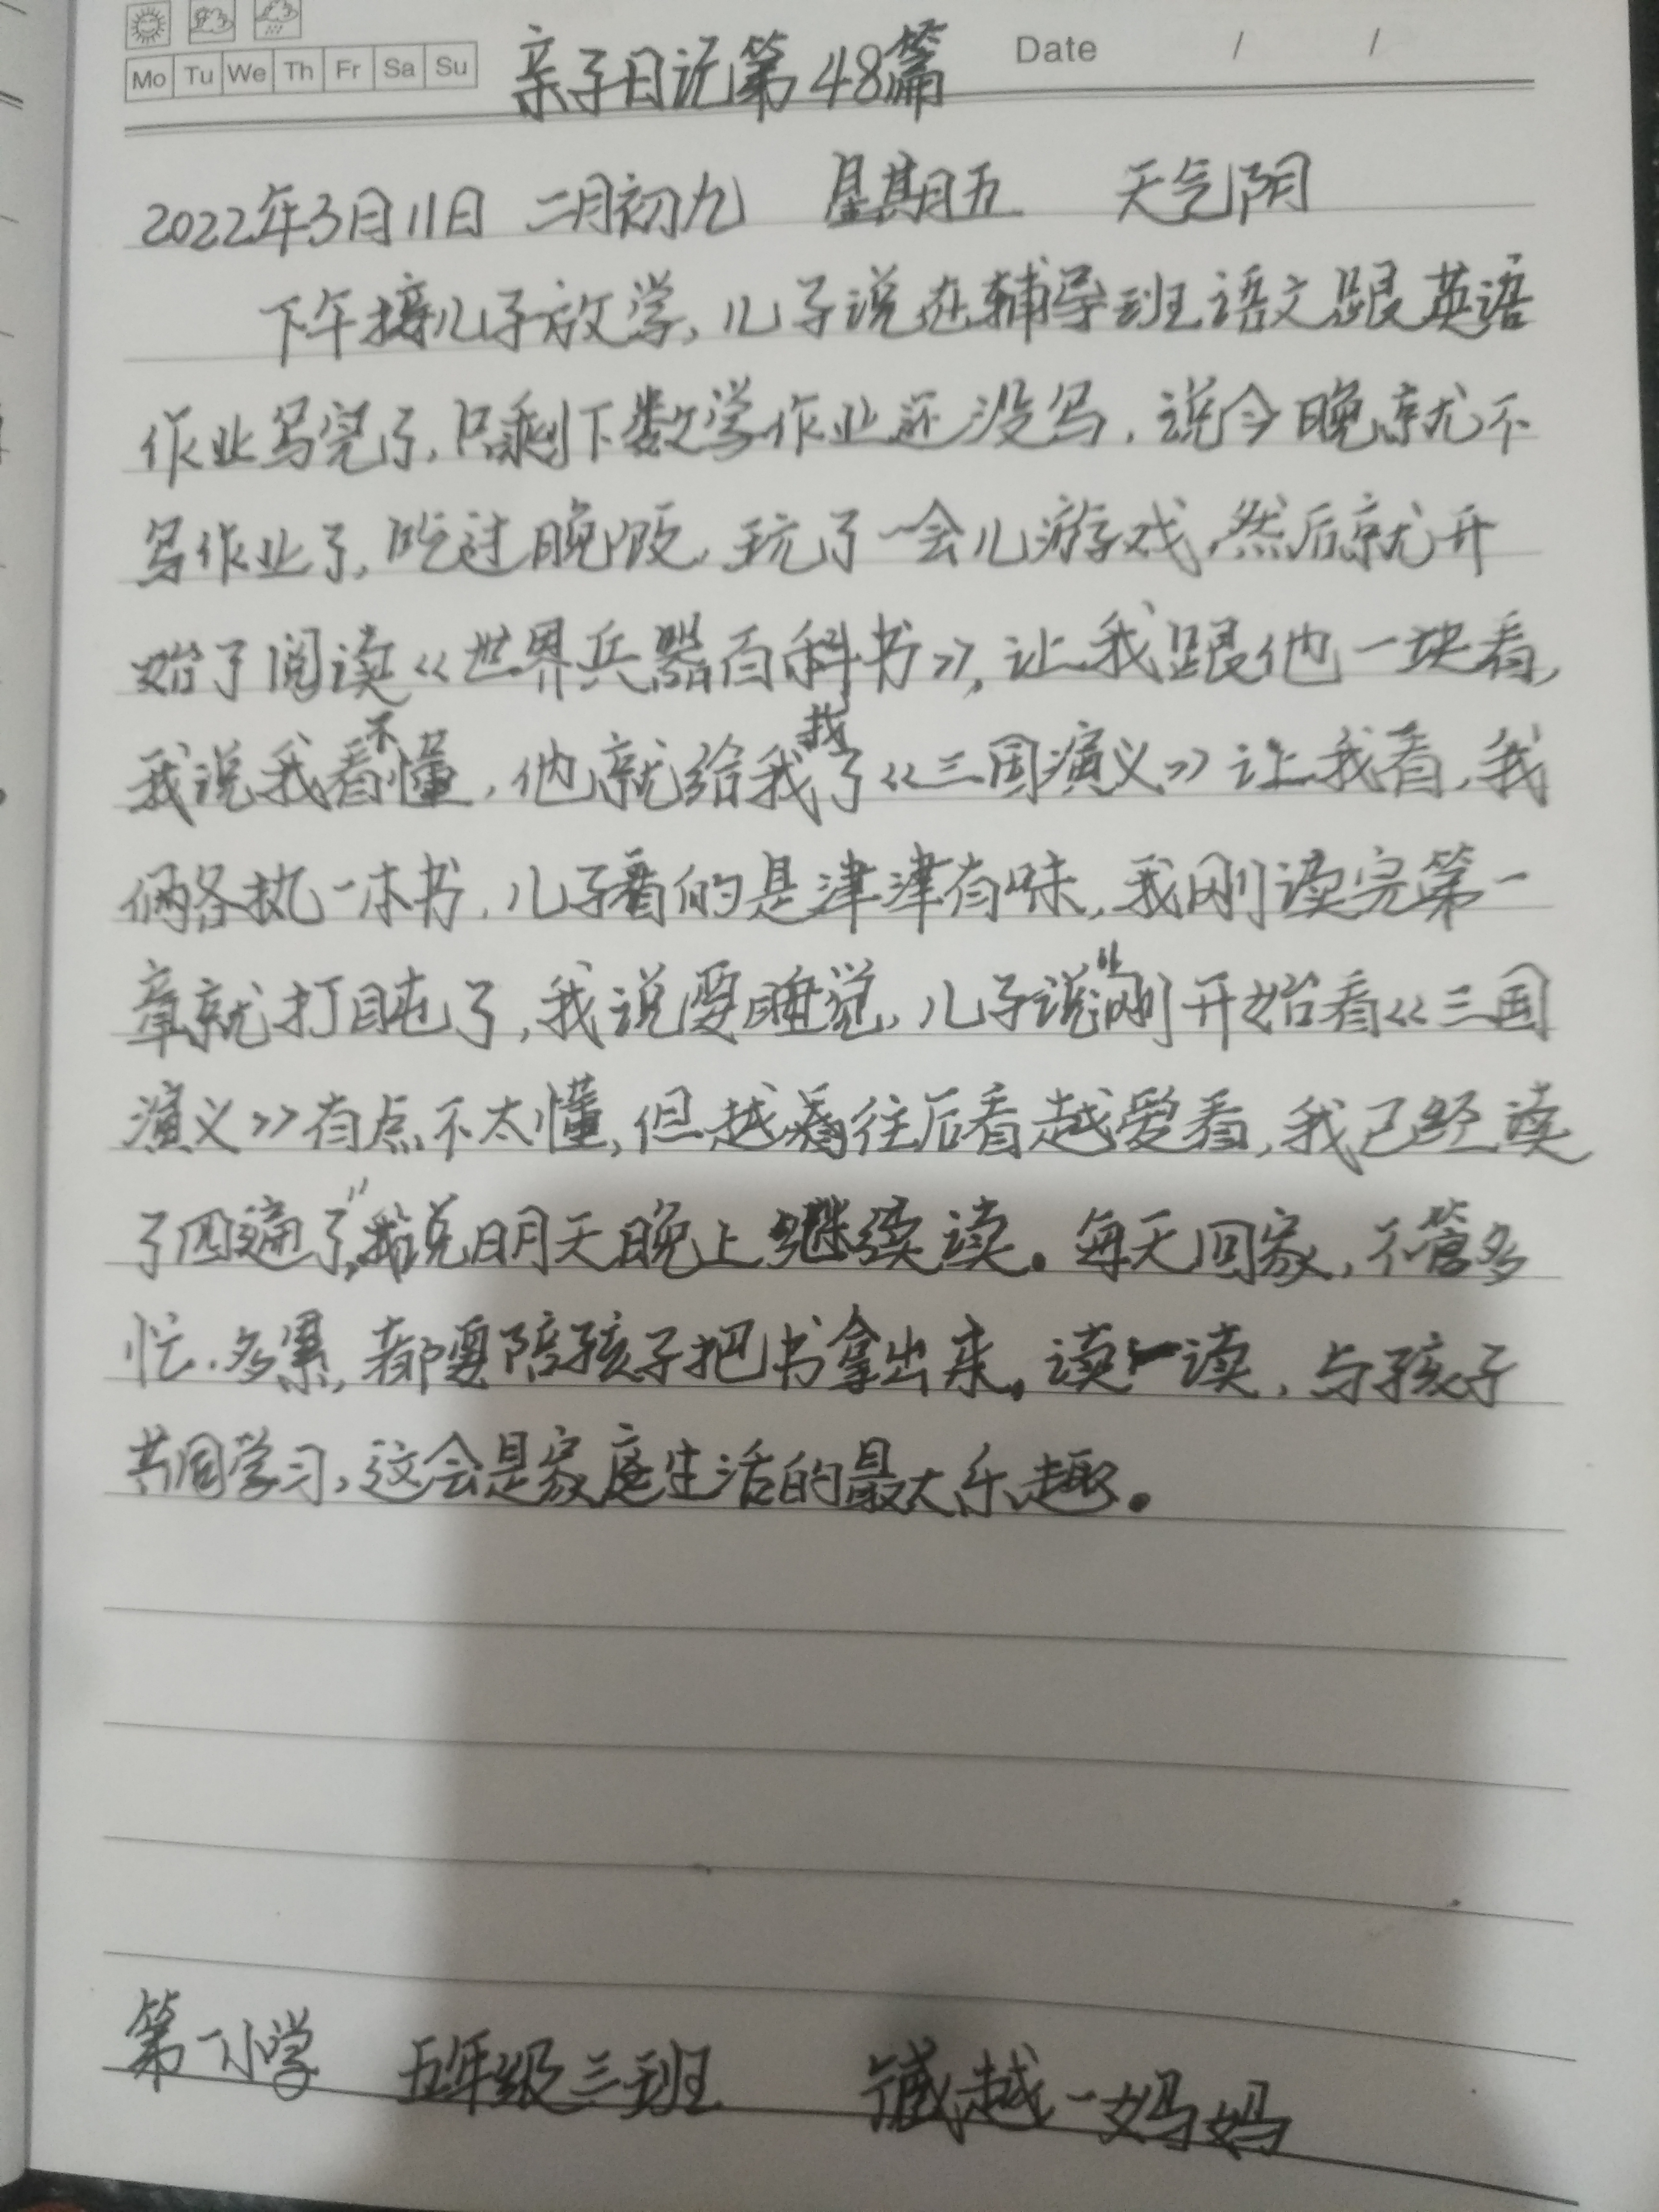 Mo Tu We Th Fr Sa Su
亲子日记第48篇
Date / /
2022年3月11日 二月初九 星期五 天气阴
下午接儿子放学,儿子说在辅导班语文跟英语
作业写完了,只剩下数学作业还没写,说今晚就不
写作业了,吃过晚饭,玩了一会儿游戏,然后就开
始了阅读《世界兵器百科书》,让我跟他一块看,
我说我看不懂,他就给我找了《三国演义》让我看,我
俩各执一本书,儿子看的是津津有味,我刚读完第一
章就打盹了,我说要睡觉,儿子说“刚开始看《三国
演义》有点不太懂,但越往后看越爱看,我已经读
了四遍了”,我说明天晚上继续读。每天回家,不管多
忙、多累,都要陪孩子把书拿出来,读一读,与孩子
共同学习,这会是家庭生活的最大乐趣。
第一小学 五年级三班 臧越一妈妈